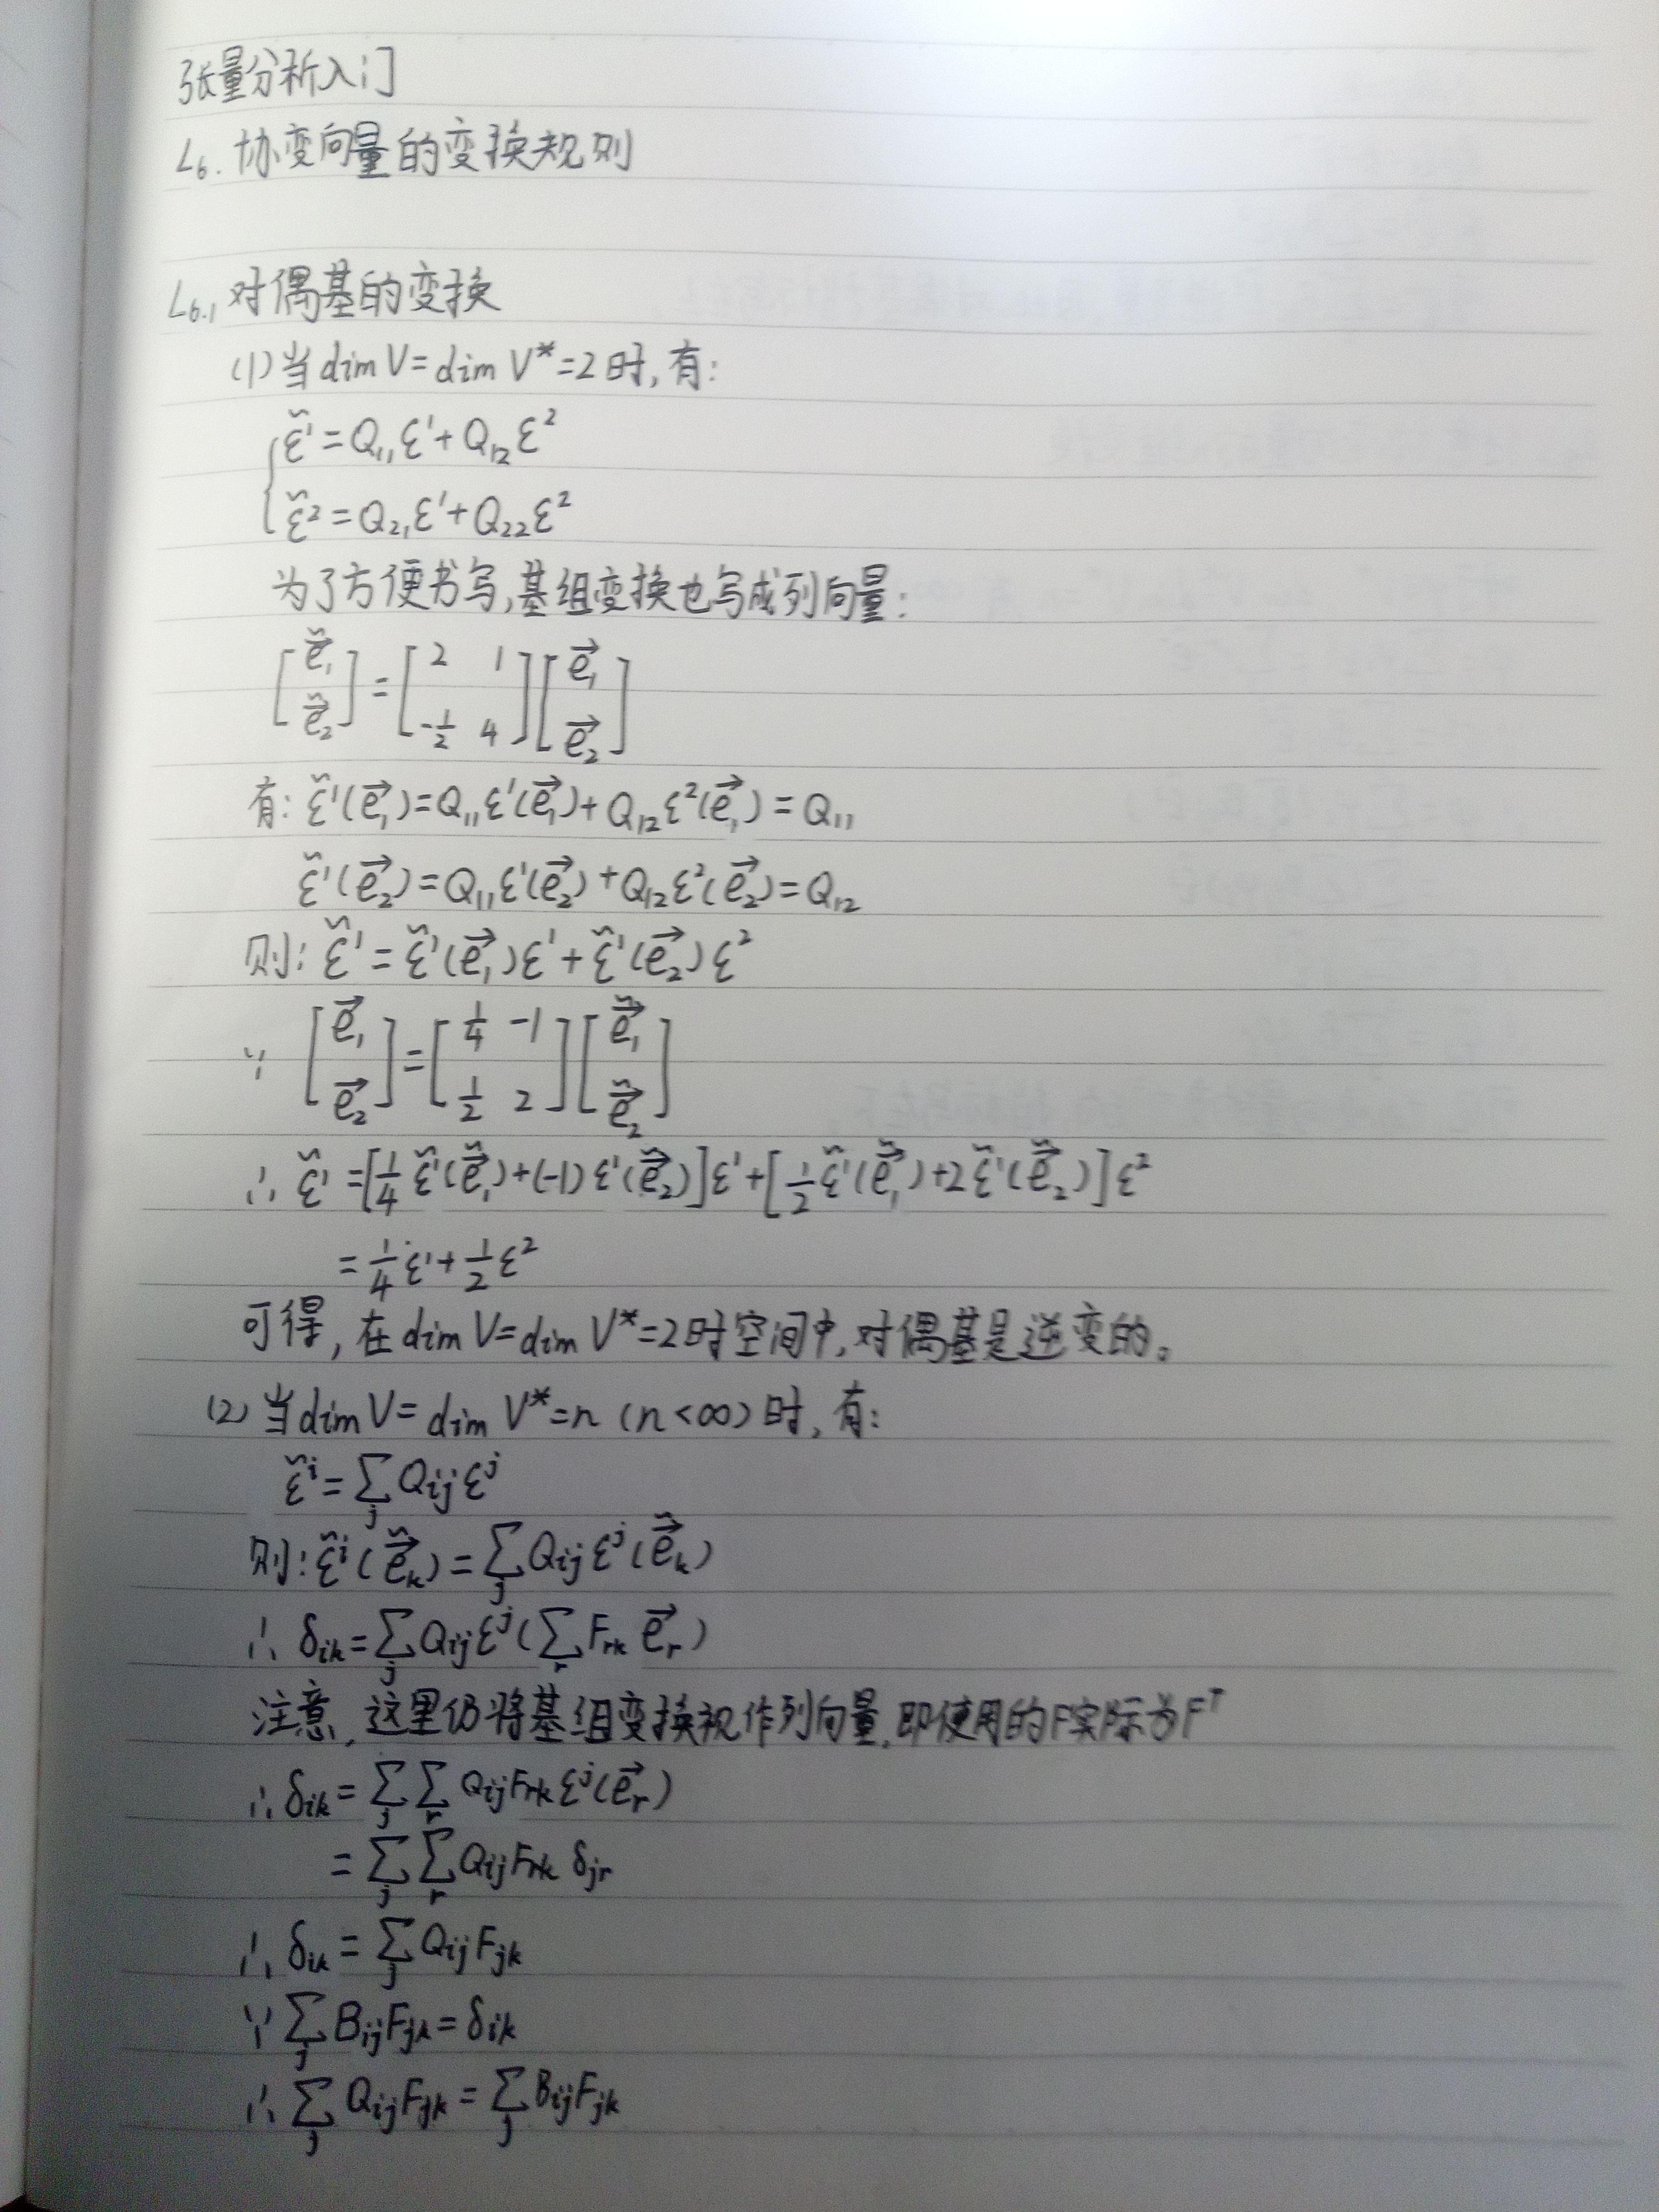 张量分析入门
L₆. 协变向量的变换规则
L₆.₁ 对偶基的变换
(1) 当 dim V = dim V* = 2 时, 有:
{ ε̃¹ = Q₁₁ε¹ + Q₁₂ε²
ε̃² = Q₂₁ε¹ + Q₂₂ε²
为了方便书写, 基组变换也写成列向量:
[ẽ⃗₁ ; ẽ⃗₂] = [2 1 ; -1/2 4] [e⃗₁ ; e⃗₂]
有: ε̃¹(e⃗₁) = Q₁₁ε¹(e⃗₁) + Q₁₂ε²(e⃗₁) = Q₁₁
ε̃¹(e⃗₂) = Q₁₁ε¹(e⃗₂) + Q₁₂ε²(e⃗₂) = Q₁₂
则: ε̃¹ = ε̃¹(e⃗₁)ε¹ + ε̃¹(e⃗₂)ε²
∵ [e⃗₁ ; e⃗₂] = [1/4 -1 ; 1/2 2] [ẽ⃗₁ ; ẽ⃗₂]
∴ ε̃¹ = [1/4 ε̃¹(ẽ⃗₁) + (-1) ε¹(ẽ⃗₂)]ε¹ + [1/2 ε̃¹(ẽ⃗₁) + 2ε̃¹(ẽ⃗₂)]ε²
= 1/4 ε¹ + 1/2 ε²
可得, 在 dim V = dim V* = 2 时空间中, 对偶基是逆变的。
(2) 当 dim V = dim V* = n (n < ∞) 时, 有:
ε̃ⁱ = ∑_j Q_ij ε^j
则: ε̃ⁱ(ẽ⃗_k) = ∑_j Q_ij ε^j(ẽ⃗_k)
∴ δ_ik = ∑_j Q_ij ε^j(∑_r F_rk e⃗_r)
注意, 这里仍将基组变换视作列向量, 即使用的F实际为Fᵀ
∴ δ_ik = ∑_j ∑_r Q_ij F_rk ε^j(e⃗_r)
= ∑_j ∑_r Q_ij F_rk δ_jr
∴ δ_ik = ∑_j Q_ij F_jk
∵ ∑_j B_ij F_jk = δ_ik
∴ ∑_j Q_ij F_jk = ∑_j B_ij F_jk